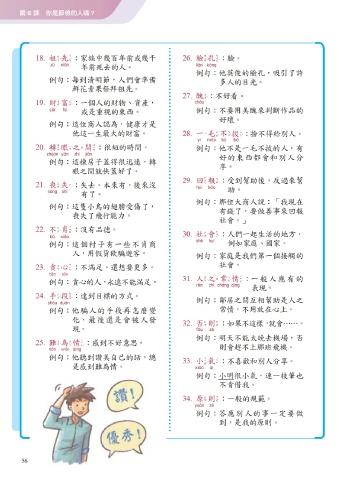 第6課 你是節儉的人嗎？
18. 祖先：家族中幾百年前或幾千
年前死去的人。
例句：每到清明節，人們會準備
鮮花素果祭拜祖先。
19. 財富：一個人的財物、資產，
或是重視的東西。
例句：這位商人認為，健康才是
他這一生最大的財富。
20. 轉眼之間：很短的時間。
例句：這棟房子蓋得很迅速，轉
眼之間就快蓋好了。
21. 喪失：失去。本來有，後來沒
有了。
例句：這隻小鳥的翅膀受傷了，
喪失了飛行能力。
22. 不肖：沒有品德。
例句：這個村子有一些不肖商
人，用假貨欺騙遊客。
23. 貪心：不滿足，還想要更多。
例句：貪心的人，永遠不能滿足。
24. 手段：達到目標的方式。
例句：他騙人的手段再怎麼變
化，最後還是會被人發
現。
25. 難為情：感到不好意思。
例句：他聽到讚美自己的話，總
是感到難為情。
讚！
優秀！
26. 臉孔：臉。
例句：他英俊的臉孔，吸引了許
多人的目光。
27. 醜：不好看。
例句：不要用美醜來判斷作品的
好壞。
28. 一毛不拔：捨不得給別人。
例句：他不是一毛不拔的人，有
好的東西都會和別人分
享。
29. 回報：受到幫助後，反過來幫
助。
例句：那位大商人說：「我現在
有錢了，要做善事來回報
社會。」
30. 社會：人們一起生活的地方，
例如家庭、國家。
例句：家庭是我們第一個接觸的
社會。
31. 人之常情：一般人應有的
表現。
例句：鄰居之間互相幫助是人之
常情，不用放在心上。
32. 否則：如果不這樣，就會……。
例句：明天不能太晚去機場，否
則會趕不上那班飛機。
33. 小氣：不喜歡和別人分享。
例句：小明很小氣，連一枝筆也
不肯借我。
34. 原則：一般的規範。
例句：答應別人的事一定要做
到，是我的原則。
56